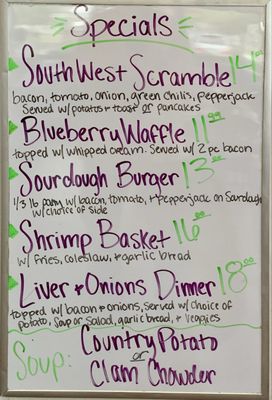 Specials
SouthWest Scramble 14.00
bacon, tomato, onion, green chilis, pepperjack
Served w/ potatos + toast or pancakes
Blueberry Waffle 11.00
topped w/ whipped cream. Served w/ 2 pc bacon
Sourdough Burger 13.00
1/3 lb patty w/ bacon, tomato, + Pepperjack on Sourdough
w/ choice of side
Shrimp Basket 16.00
w/ fries, coleslaw, + garlic bread
Liver + Onions Dinner 18.00
topped w/ bacon + onions, served w/ choice of
potato, soup or Salad, garlic bread, + veggies
Soup: Country Potato
or
Clam Chowder